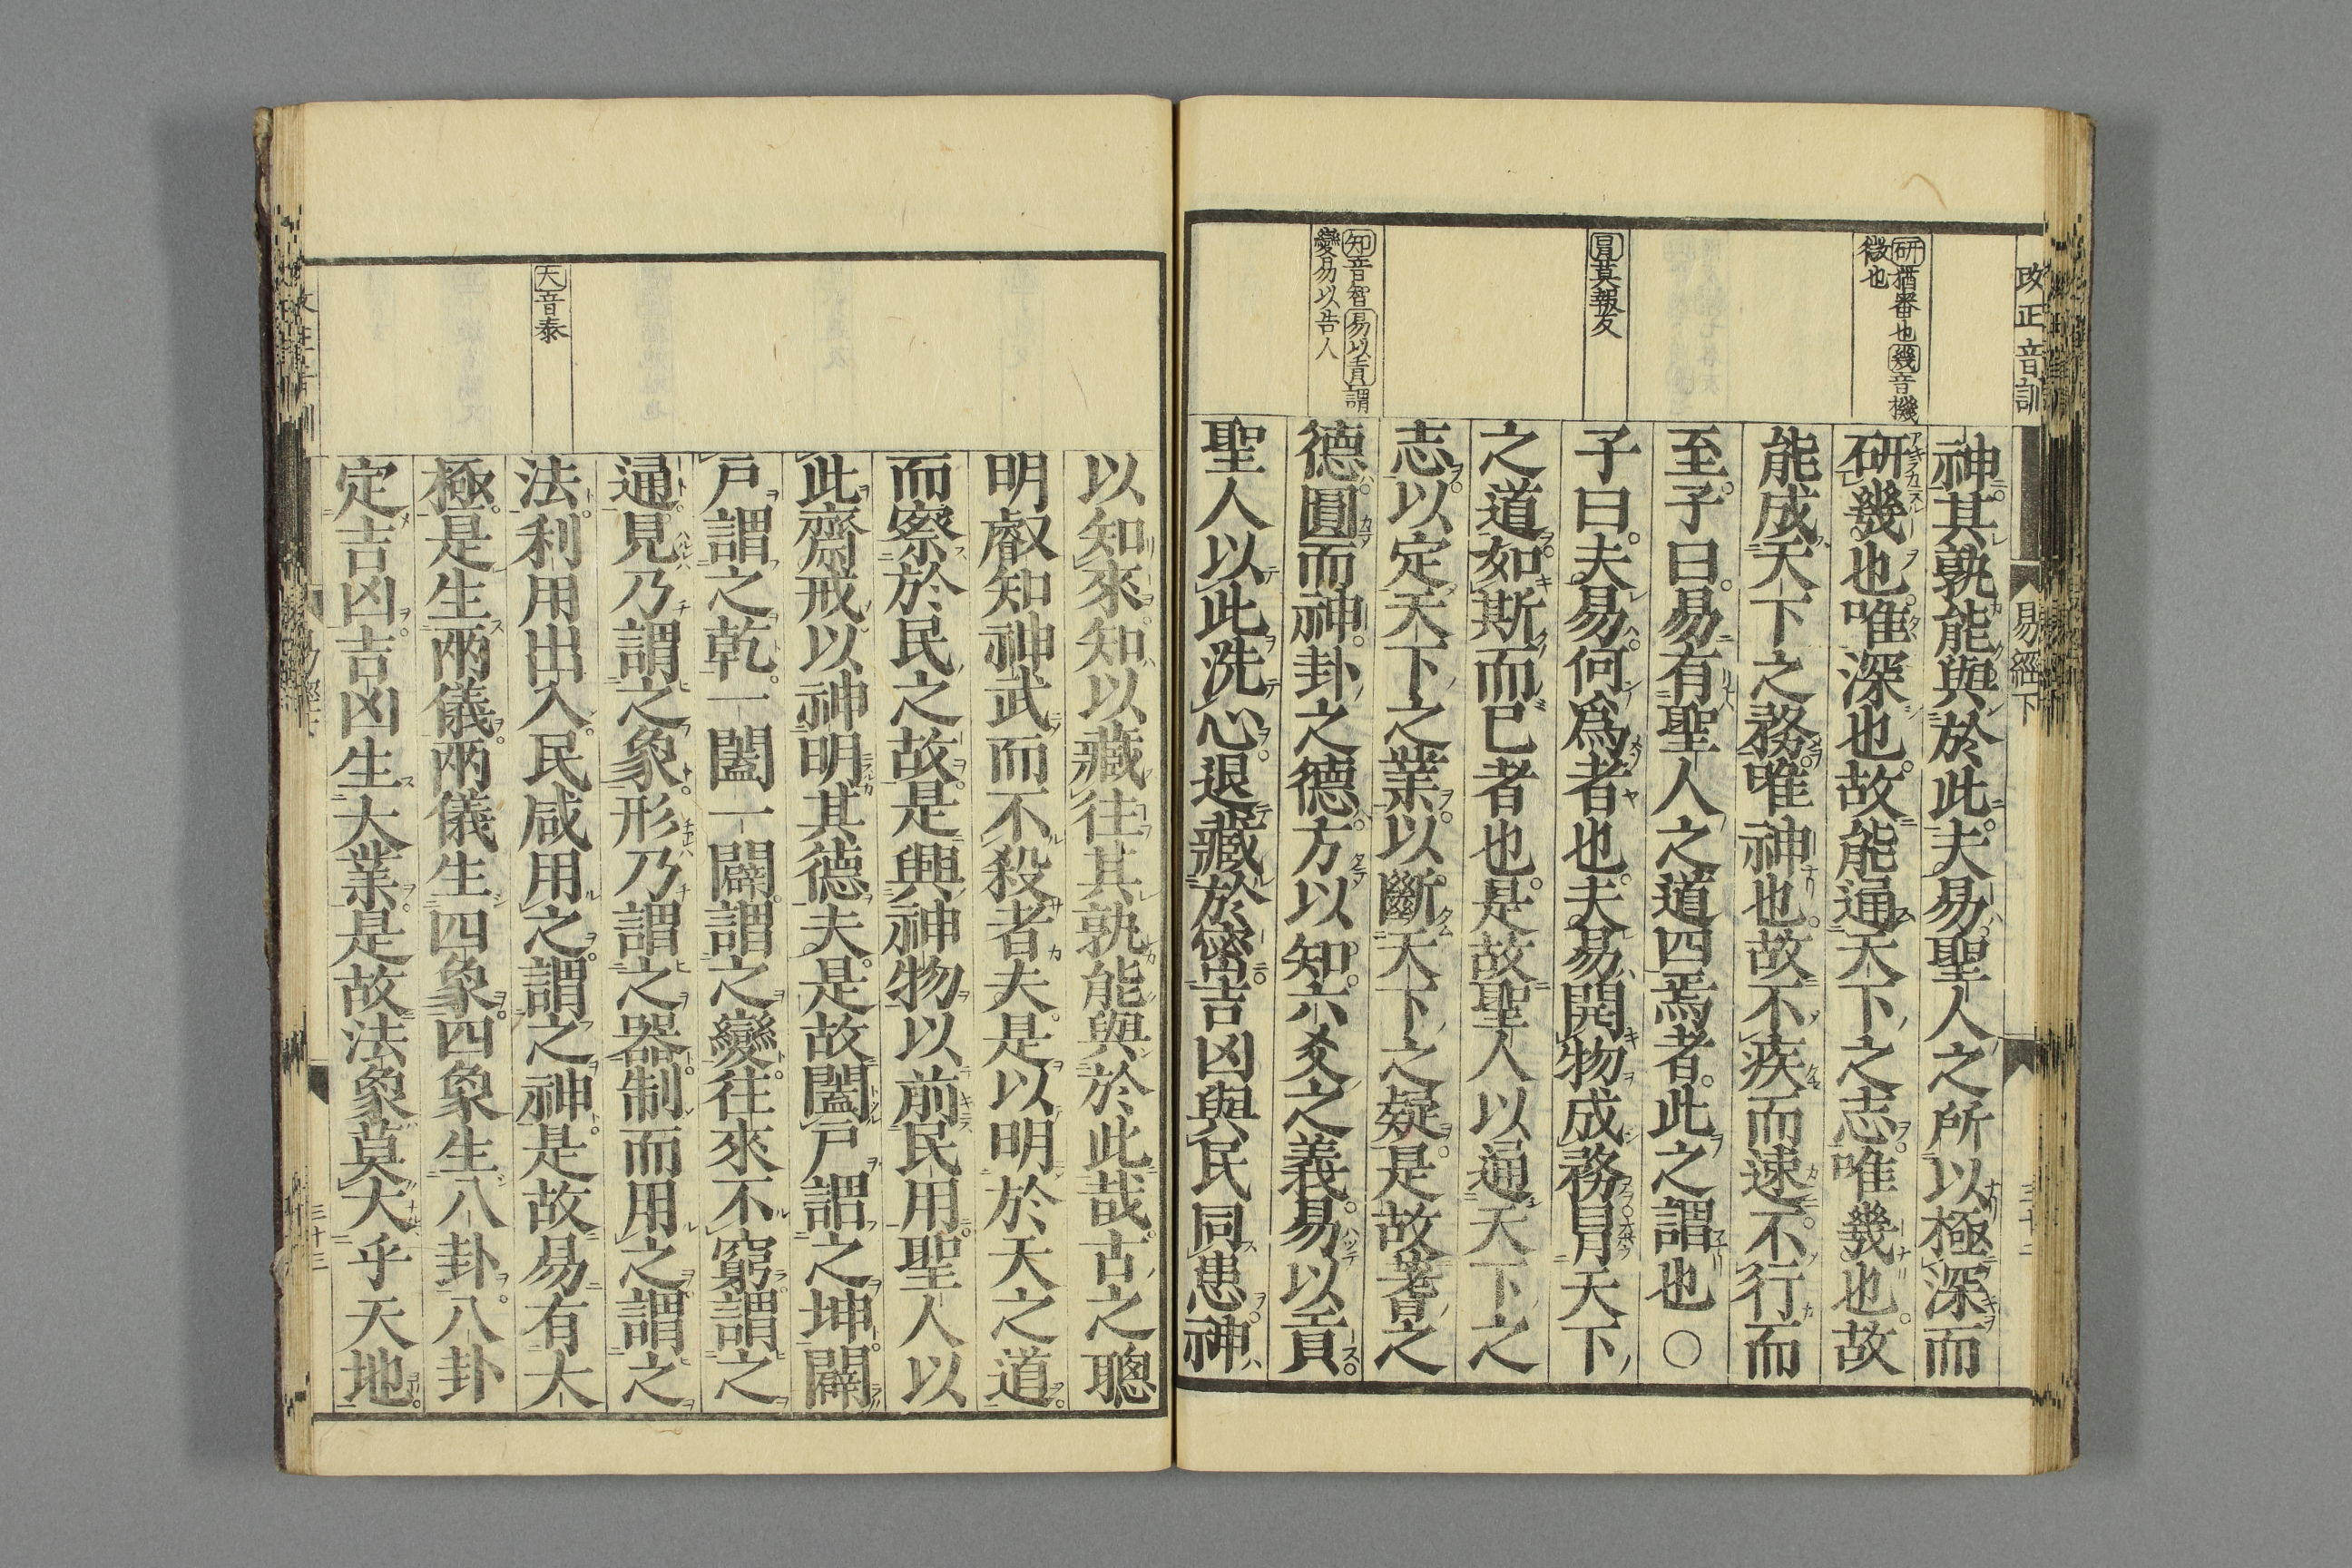 改正音訓
易經下
研猶審也幾音機
微也
冒莫報反
知音智易以貢謂
變易以告人
神其孰能與於此夫易聖人之所以極深而
研幾也唯深也故能通天下之志唯幾也故
能成天下之務唯神也故不疾而速不行而
至子曰易有聖人之道四焉者此之謂也○
子曰夫易何爲者也夫易開物成務冒天下
之道如斯而已者也是故聖人以通天下之
志以定天下之業以斷天下之疑是故蓍之
德圓而神卦之德方以知六爻之義易以貢
聖人以此洗心退藏於密吉凶與民同患神
大音泰
以知來知以藏往其孰能與於此哉古之聰
明叡知神武而不殺者夫是以明於天之道
而察於民之故是興神物以前民用聖人以
此齋戒以神明其德夫是故闔戶謂之坤闢
戶謂之乾一闔一闢謂之變往來不窮謂之
通見乃謂之象形乃謂之器制而用之謂之
法利用出入民咸用之謂之神是故易有大
極是生兩儀兩儀生四象四象生八卦八卦
定吉凶吉凶生大業是故法象莫大乎天地
三十三